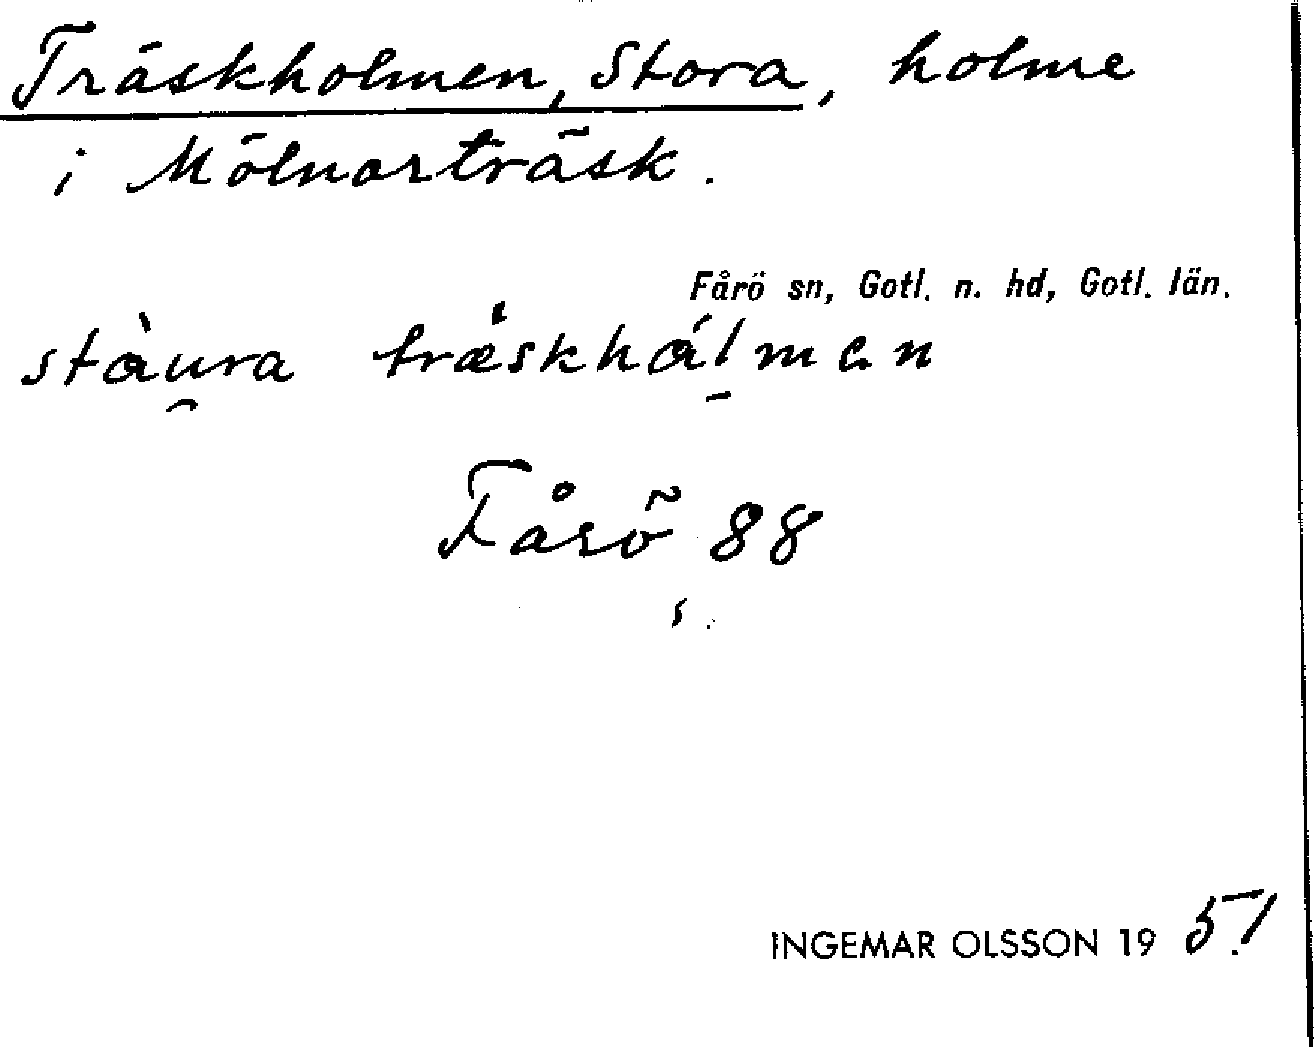 Träskholmen, Stora, holme
i Mölnorträsk.
Fårö sn, Gotl. n. hd, Gotl. län.
stàu̯ra træ̀skhál̠men
Fårö 88
s.
INGEMAR OLSSON 19 51